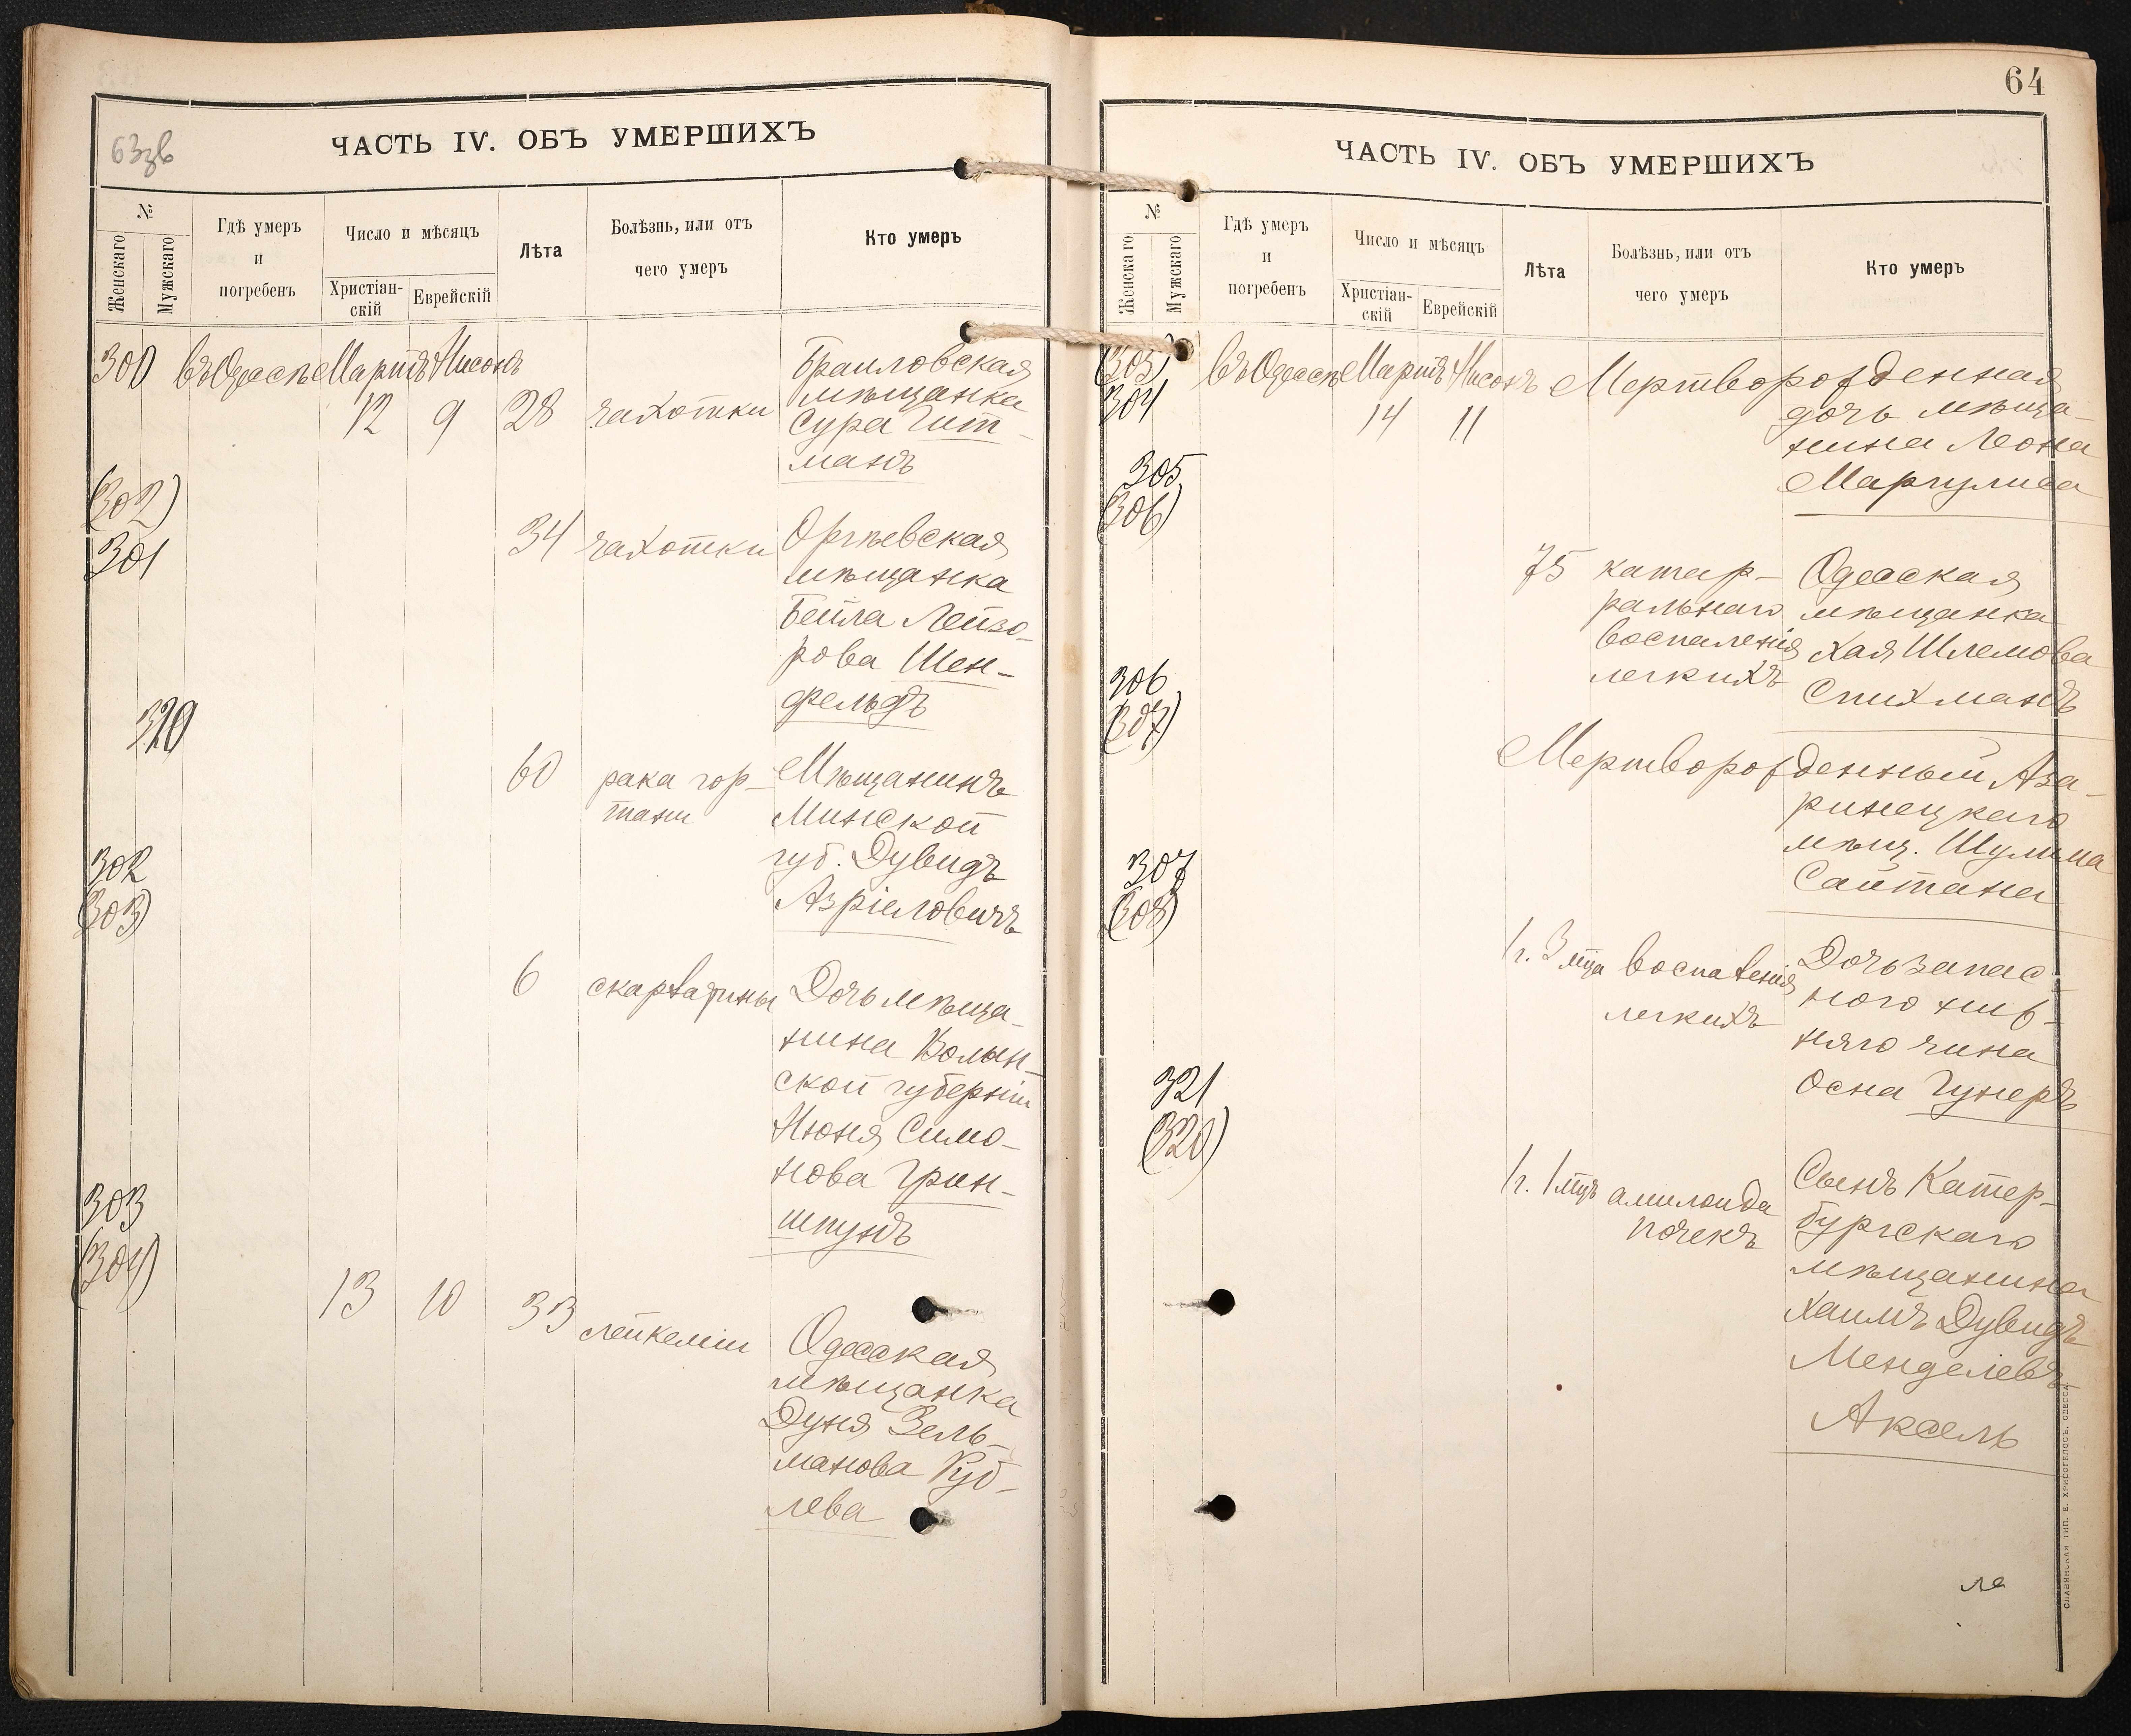 63зв
ЧАСТЬ IV. ОБЪ УМЕРШИХЪ
№
Женскаго
Мужскаго
Гдѣ умеръ
и
погребенъ
Число и мѣсяцъ
Христіан-
скій
Еврейскій
Лѣта
Болѣзнь, или отъ
чего умеръ
Кто умеръ
300 въ Одессѣ Мартъ Нисонъ
12 9 28 чахотки
Браиловская
мѣщанка
Сура Гит-
манъ
(302)
301
34 чахотки
Оргѣевская
мѣщанка
Бейла Лейзо-
рова Шен-
фельдъ
320
60 рака гор-
тани
Мѣщанинъ
Минской
губ. Дувидъ
Азріеловичъ
302
(303)
6 скарлатины
Дочь мѣща-
нина Волын-
ской губерніи
Нюня Симо-
нова Грин-
шпунъ
303
(304)
13 10 33 лейкеміи
Одесская
мѣщанка
Дуня Зель-
манова Руб-
лева
64
ЧАСТЬ IV. ОБЪ УМЕРШИХЪ
№
Женскаго
Мужскаго
Гдѣ умеръ
и
погребенъ
Число и мѣсяцъ
Христіан-
скій
Еврейскій
Лѣта
Болѣзнь, или отъ
чего умеръ
Кто умеръ
(305)
304
въ Одессѣ Мартъ Нисонъ
14 11
Мертворожденная
дочь мѣща-
нина Леона
Маргулиса
305
(306)
75 катар-
ральнаго
воспаленія
легкихъ
Одесская
мѣщанка
Хая Шлемова
Спихманъ
306
(307)
Мертворожденный Аза-
ринецкаго
мѣщ. Шулима
Сайтана
307
(308)
1 г. 3 мца воспаленія
легкихъ
Дочь запас-
ного ниж-
няго чина
Осна Гунеръ
321
(320)
1 г. 1 мцъ амилоида
почекъ
Сынъ Катер-
бургскаго
мѣщанина
Хаимъ Дувидъ
Менделевъ
Аксель
СЛАВЯНСКАЯ ТИП. Е. ХРИСОГЕЛОСЪ, ОДЕССА